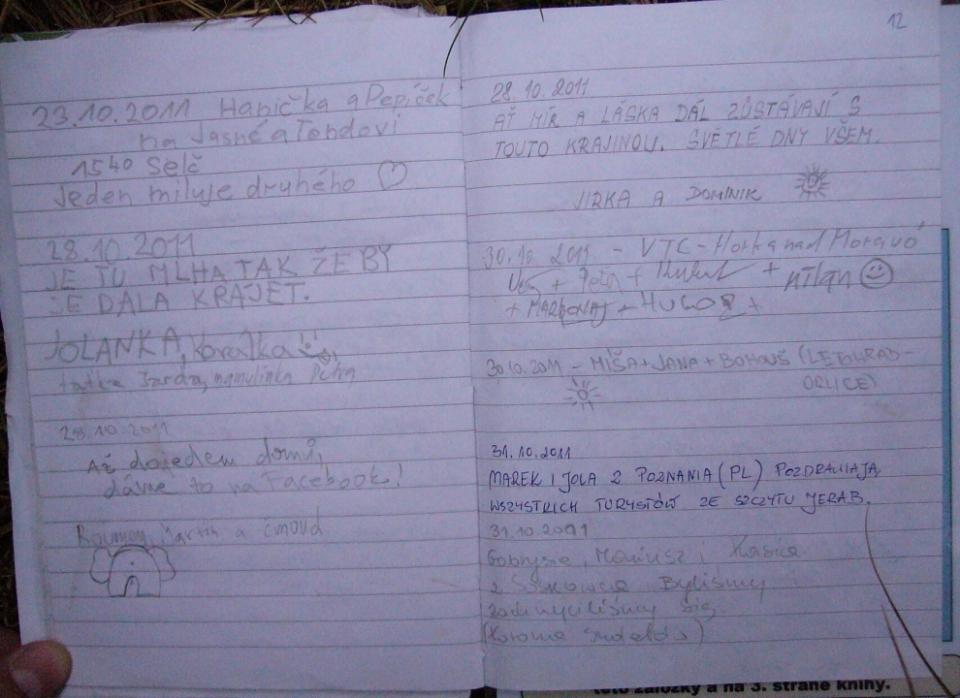 23.10.2011 Hanička a Pepíček
na Jasné a Tondovi
1540 Selč
Jeden miluje druhého
28.10.2011
JE TU MLHA TAK ŽE BY
SE DALA KRÁJET.
JOLANKA, Koralka
taťka Jarda, mamulinka Petra
28.10.2011
Až dojedem domů,
dáme to na Facebook!
Martin a
12
28.10.2011
AŤ MÍR A LÁSKA DÁL ZŮSTÁVAJÍ S
TOUTO KRAJINOU. SVĚTLÉ DNY VŠEM.
JIRKA A DOMINIK
30.10.2011 - VTC - Horka nad Moravou
+ + + Milan
+ + HUGO +
30.10.2011 - MÍŠA + JANA + BOHOUŠ (LETOHRAD-
ORLICE)
31.10.2011
MAREK I JOLA Z POZNANIA (PL) POZDRAWIAJĄ
WSZYSTKICH TURYSTÓW ZE SZCZYTU JERAB.
31.10.2011
Gabrysia, Mariusz i Kasia
z Byliśmy
zachwyciliśmy się
(Korona Sudetów)
této záložky a na 3. straně knihy.